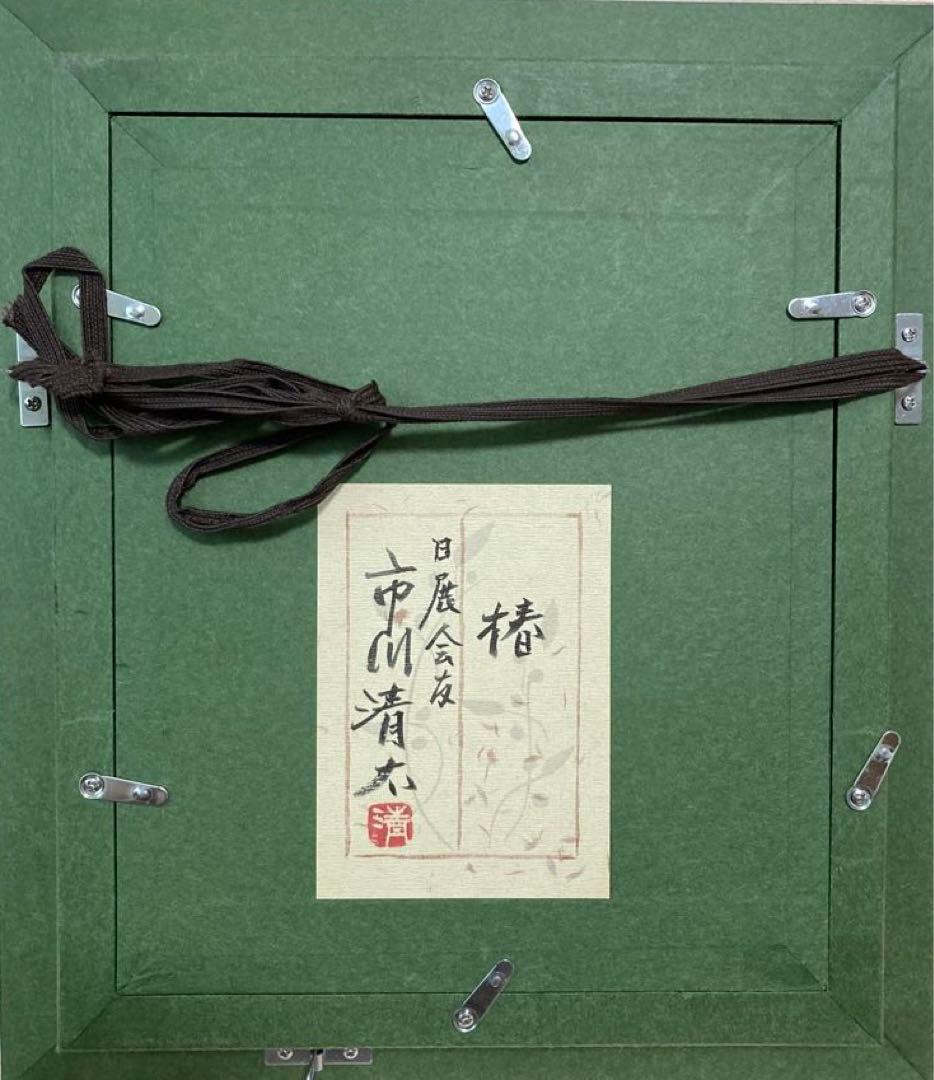 椿
日展会友
市川清太
清